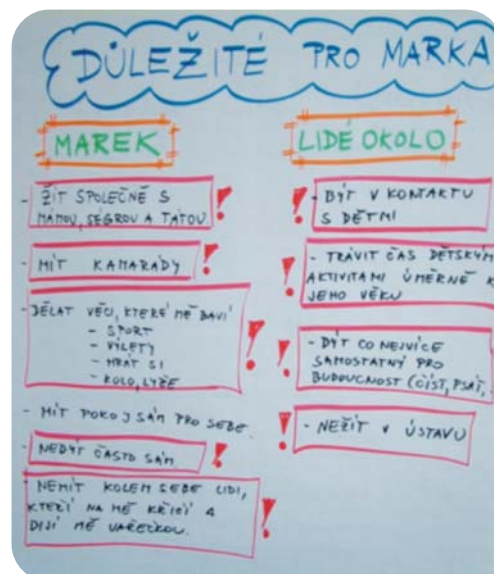 DŮLEŽITÉ PRO MARKA
MAREK
- ŽÍT SPOLEČNĚ S
MÁMOU, SÉGROU A TÁTOU !
- MÍT KAMARÁDY !
- DĚLAT VĚCI, KTERÉ MĚ BAVÍ
- SPORT
- VÝLETY
- HRÁT SI
- KOLO, LYŽE !
- MÍT POKOJ SÁM PRO SEBE.
- NEBÝT ČASTO SÁM. !
- NEMÍT KOLEM SEBE LIDI,
KTEŘÍ NA MĚ KŘIČÍ A
BIJÍ MĚ VAŘEČKOU. !
LIDÉ OKOLO
! - BÝT V KONTAKTU
S DĚTMI
! - TRÁVIT ČAS DĚTSKÝM
AKTIVITAMI ÚMĚRNĚ K
JEHO VĚKU
! - BÝT CO NEJVÍCE
SAMOSTATNÝ PRO
BUDOUCNOST (ČÍST, PSÁT,
! - NEŽÍT V ÚSTAVU